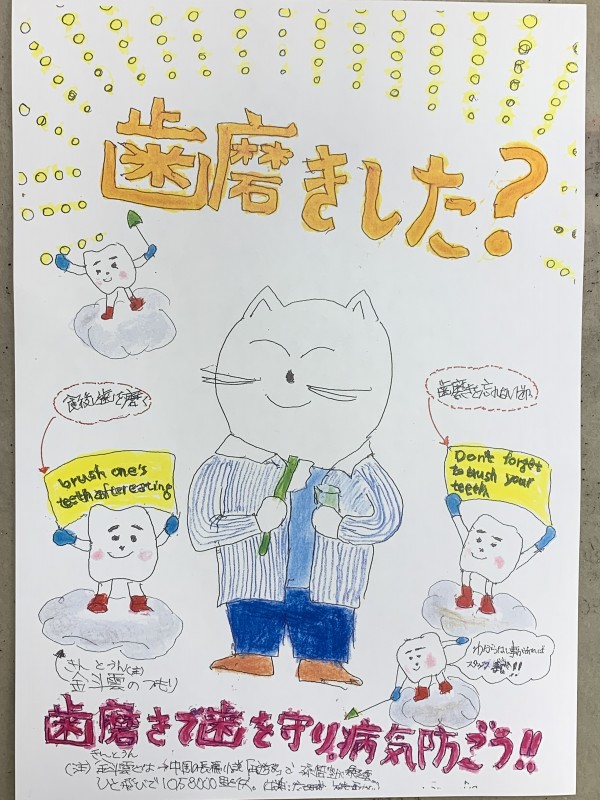 歯磨きした?
食後に歯を磨く
歯磨きを忘れないでね
brush one's
teeth after eating
Don't forget
to brush your
teeth
わからない事があれば
スタッフ
!!
きんとうん(注)
金斗雲のつもり
歯磨きで歯を守り病気防ごう!!
きんとうん
(注)金斗雲とは→中国の長編小説「西遊記」で
ひと飛びで10万8000里